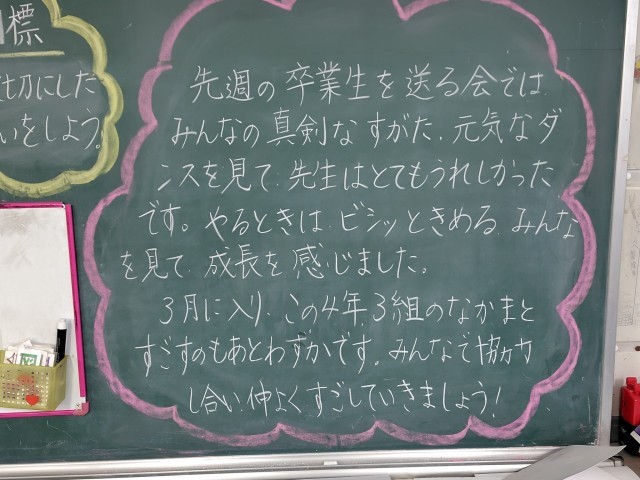 標
切にした
いをしよう。
先週の卒業生を送る会では
みんなの真剣なすがた、元気なダ
ンスを見て、先生はとてもうれしかった
です。やるときは、ビシッときめる、みんな
を見て、成長を感じました。
3月に入り、この4年3組のなかまと
すごすのもあとわずかです。みんなで協力
し合い仲よくすごしていきましょう!